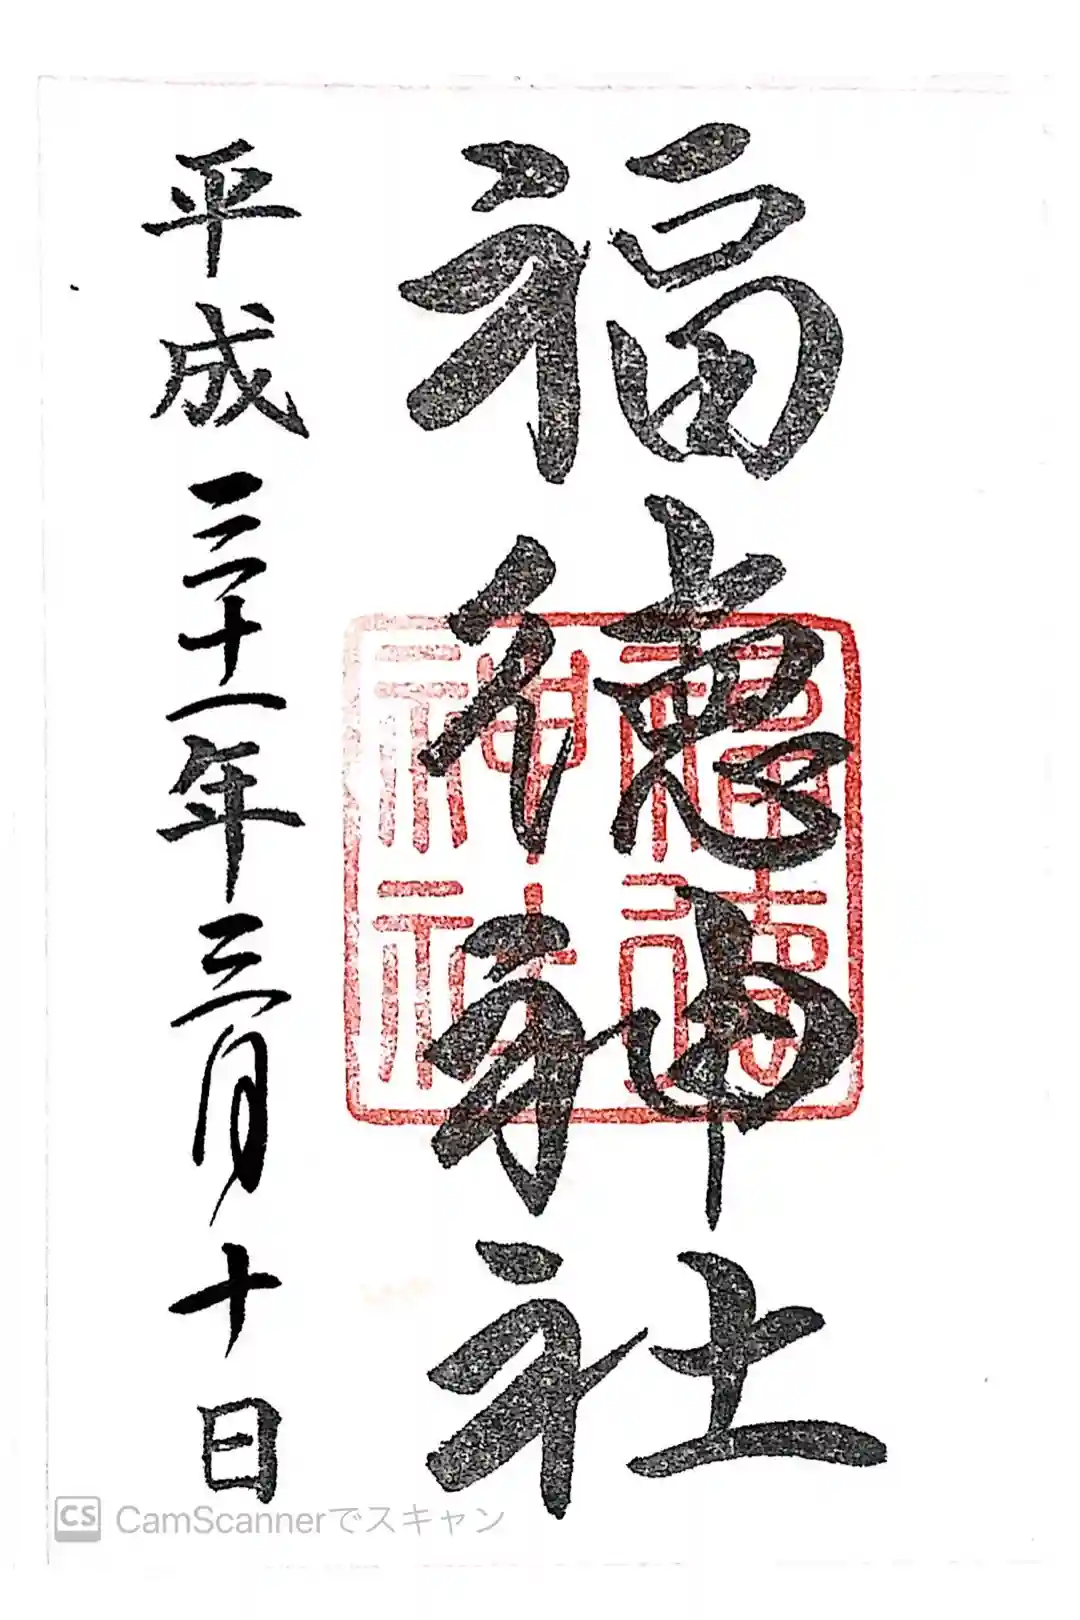 福徳神社
平成三十一年三月十日
福徳神社
CS CamScannerでスキャン